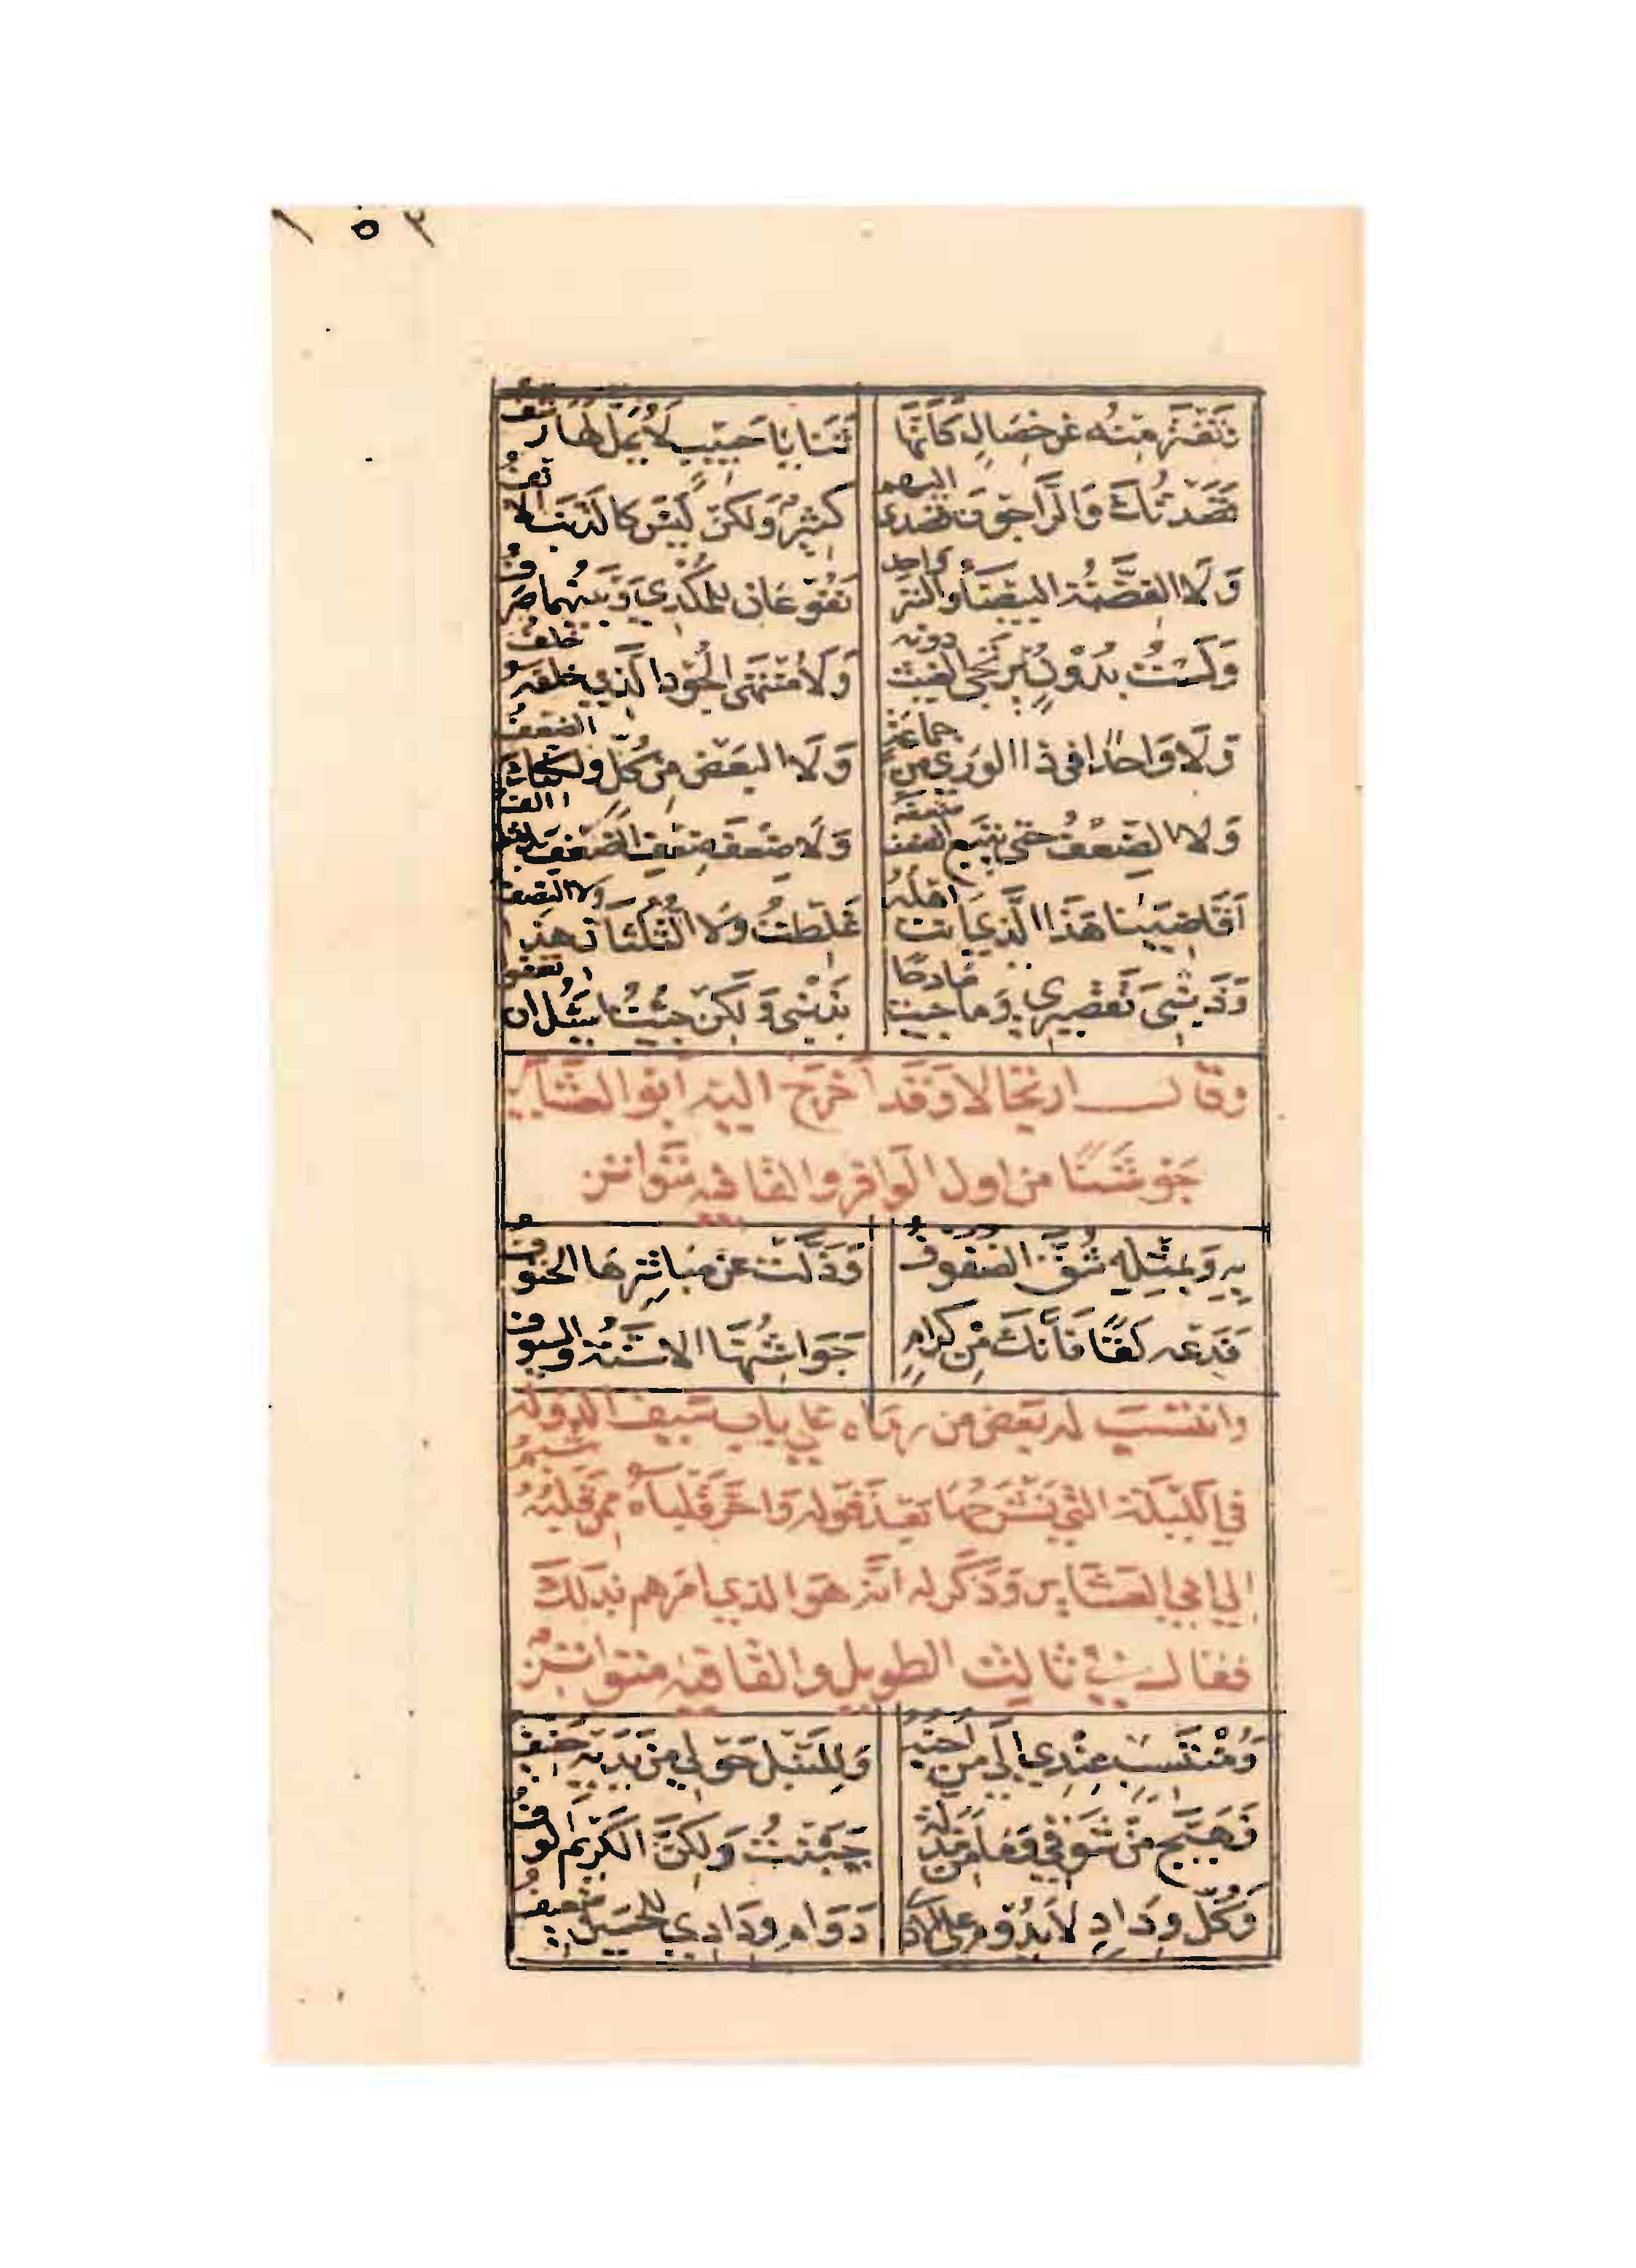 ١٥٢
تَفْتَرُّ مِنْهُ عَنْ خِصَالٍ كَأَنَّهَا ثَنَايَا حَبِيبٍ لَا يُمَلُّ لَهَا رَشْفُ
قَصَدْتُكَ وَالرَّاجُونَ قَصْدِي اليهم كَثِيرٌ وَلَكِنْ لَيْسَ كَالذَّنَبِ الانفُ
وَلَا الفِضَّةُ البَيْضَاءُ وَالتِّبْرُ وَاحِدٌ نَفُوعَانِ لِلْمُكْدِي وَبَيْنَهُمَا صَرْفُ
وَلَسْتَ بِدُونٍ يُرْتَجَى الغَيْثُ دونه وَلَا مُنْتَهَى الجُودِ الَّذِي خَلْفَهُ خَلْفُ
وَلَا وَاحِدًا فِي ذَا الوَرَى مِنْ جَمَاعَةٍ وَلَا البَعْضُ مِنْ كُلٍّ وَلَكِنَّكَ الضعف
وَلَا الضِّعْفُ حَتَّى يَتْبَعَ الضعف ضعفه وَلَا ضِعْفَ ضِعْفِ الضِّعْفِ بل مثله الف
أَقَاضِيَنَا هَذَا الَّذِي أَنْتَ أَهْلُهُ غَلِطْتُ وَلَا الثُّلْثَانِ هَذَا وَلَا النصف
وَذَنْبِي تَقْصِيرِي وَمَا جِئْتُ مَادِحًا بِذَنْبِي وَلَكِنْ جِئْتُ أَسْأَلُ أَنْ تعفو
وقال ارتجالا وَقَد أَخرَجَ اليه أبو العَشَاير
جَوْشَنًا من اول الوافر والقافيه متواتر
بِهِ وَبِمِثْلِهِ شُقَّ الصُّفُوفُ وَذَلَّتْ عَنْ مُبَاشِرِهَا الحُتُوفُ
فَدَعْهُ لَقًى فَإِنَّكَ مِنْ كِرَامٍ جَوَاشِنُهَا الأَسِنَّةُ وَالسُّيُوفُ
وانتسب له بعض من رماه على باب سيف الدوله
في الليلة التي نشرحها بعد قوله وَاحَرَّ قلباه ممن قلبه شبم
إلى ابي العشاير وَذَكَر له انه هو الذي امرهم بذلك
فقال في ثالث الطويل والقافيه متواتر
وَمُنْتَسِبٍ عِنْدِي إِلَى مَنْ أُحِبُّهُ وَلِلنَّبْلِ حَوْلِي مِنْ يَدَيْهِ حَفِيفُ
فَهَيَّجَ مِنْ شَوْقِي وَمَا مِنْ مَذَلَّةٍ حَنَنْتُ وَلَكِنَّ الكَرِيمَ أَلُوفُ
وَكُلُّ وِدَادٍ لَا يَدُومُ عَلَى الأَذَى دَوَامَ وِدَادِي لِلْحُسَيْنِ ضَعِيفُ